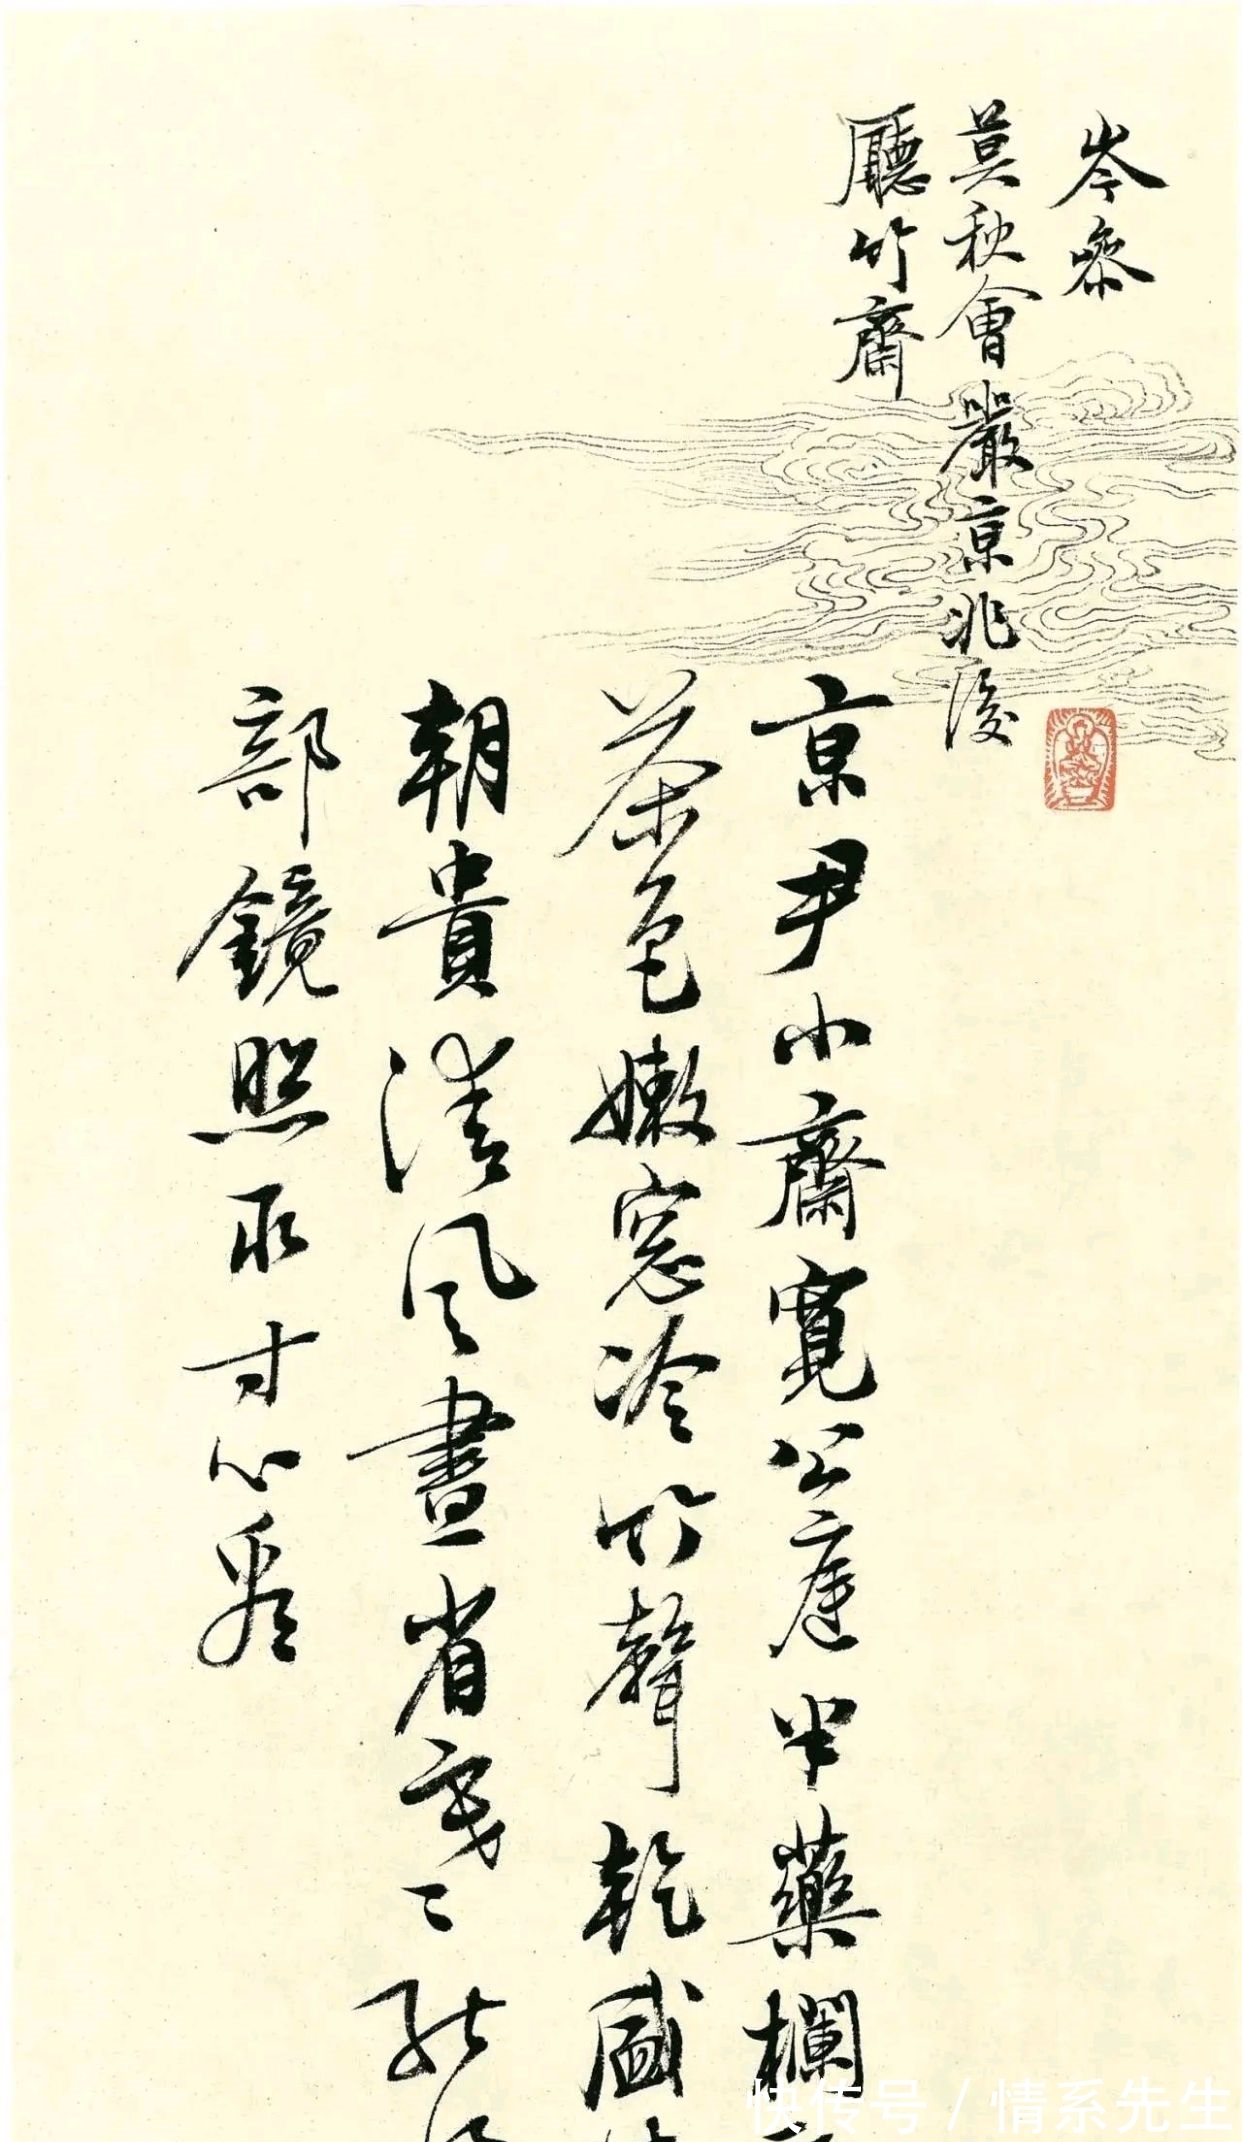 岑參
莫秋會嚴京兆後
廳竹齋
京尹小齋寬公庭半藥欄
茶色嫩窓冷竹聲乾盛
朝貴清風畫省寒
部鏡照取寸心看
快传号 / 情系先生